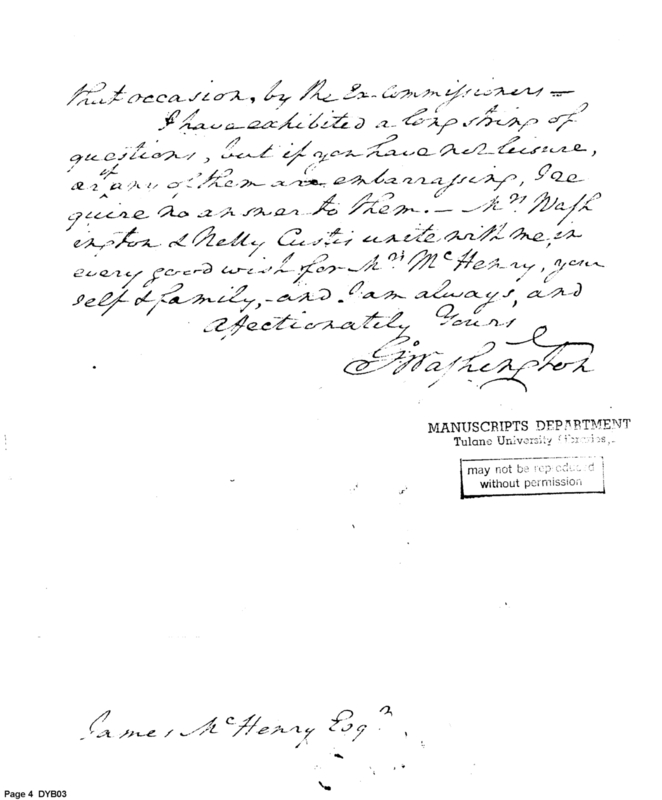 that occasion, by the Ex-Commissioners—
I have exhibited a long string of
questions, but if you have not leisure,
or if any of them are embarrassing, I re
quire no answer to them.— Mrs Wash
ington & Nelly Custis unite with me, in
every good wish for Mrs McHenry, your
self & family,—and I am always, and
Affectionately Yours
Go Washington
MANUSCRIPTS DEPARTMENT
Tulane University Libraries,
may not be reproduced
without permission
James McHenry Esqr.
Page 4 DYB03